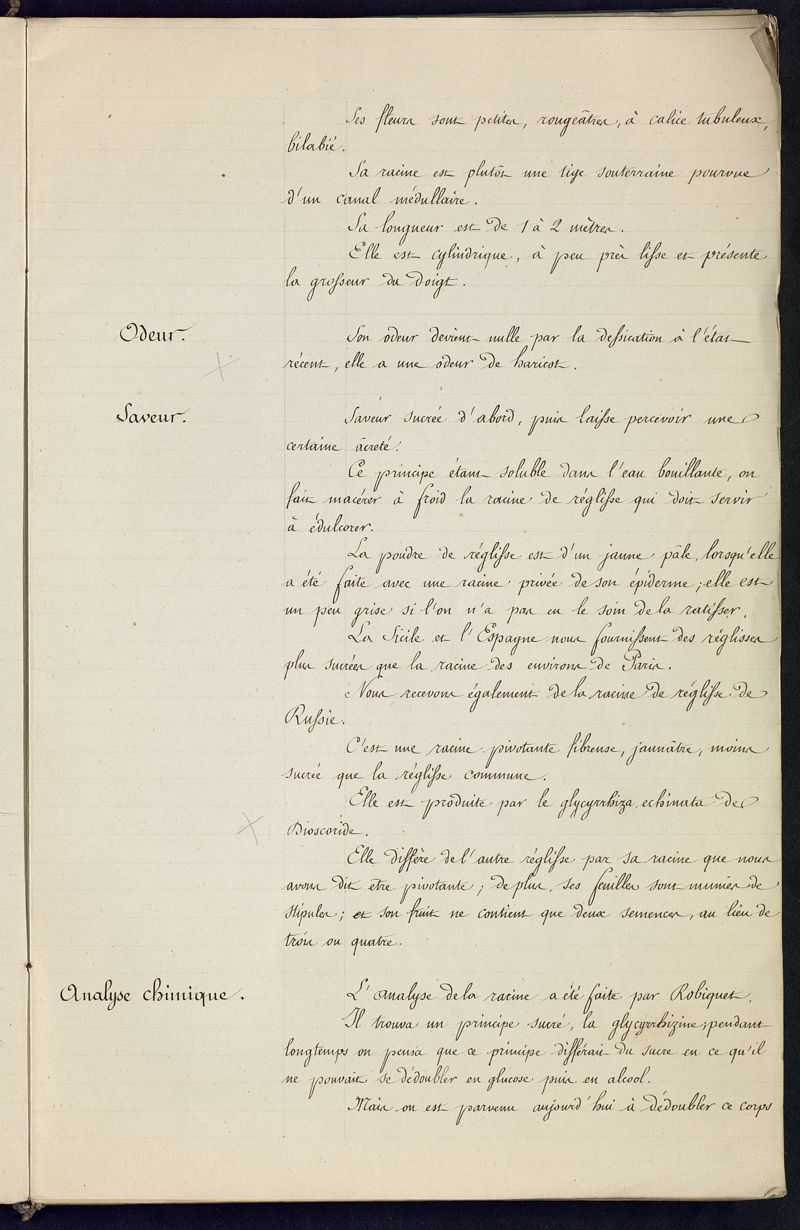 Ses fleurs sont petites, rougeâtres, à calice tubuleux,
bilabié.
Sa racine est plutôt une tige souterraine pourvue
d'un canal médullaire.
Sa longueur est de 1 à 2 mètres.
Elle est cylindrique, à peu près lisse et présente
la grosseur du doigt.
Odeur.
Son odeur devient nulle par la dessication à l'état
récent, elle a une odeur de haricot.
Saveur.
Saveur sucrée d'abord, puis laisse percevoir une
certaine âcreté.
Ce principe étant soluble dans l'eau bouillante, on
fait macérer à froid la racine de réglisse qui doit servir
à édulcorer.
La poudre de réglisse est d'un jaune pâle, lorsqu'elle
a été faite avec une racine privée de son épiderme; elle est
un peu grise si l'on n'a pas eu le soin de la ratisser.
La Sicile et l'Espagne nous fournissent des réglisses
plus sucrées que la racine des environs de Paris.
Nous recevons également de la racine de réglisse de
Russie.
C'est une racine pivotante fibreuse, jaunâtre, moins
sucrée que la réglisse commune.
Elle est produite par le glycyrrhiza echinata de
Dioscoride.
Elle diffère de l'autre réglisse par sa racine que nous
avons dit être pivotante; de plus, ses feuilles sont munies de
stipules; et son fruit ne contient que deux semences, au lieu de
trois ou quatre.
Analyse chimique.
L'analyse de la racine a été faite par Robiquet.
Il trouva un principe sucré, la glycyrrhizine; pendant
longtemps on pensa que ce principe différait du sucre en ce qu'il
ne pouvait se dédoubler en glucose puis en alcool.
Mais on est parvenu aujourd'hui à dédoubler ce corps